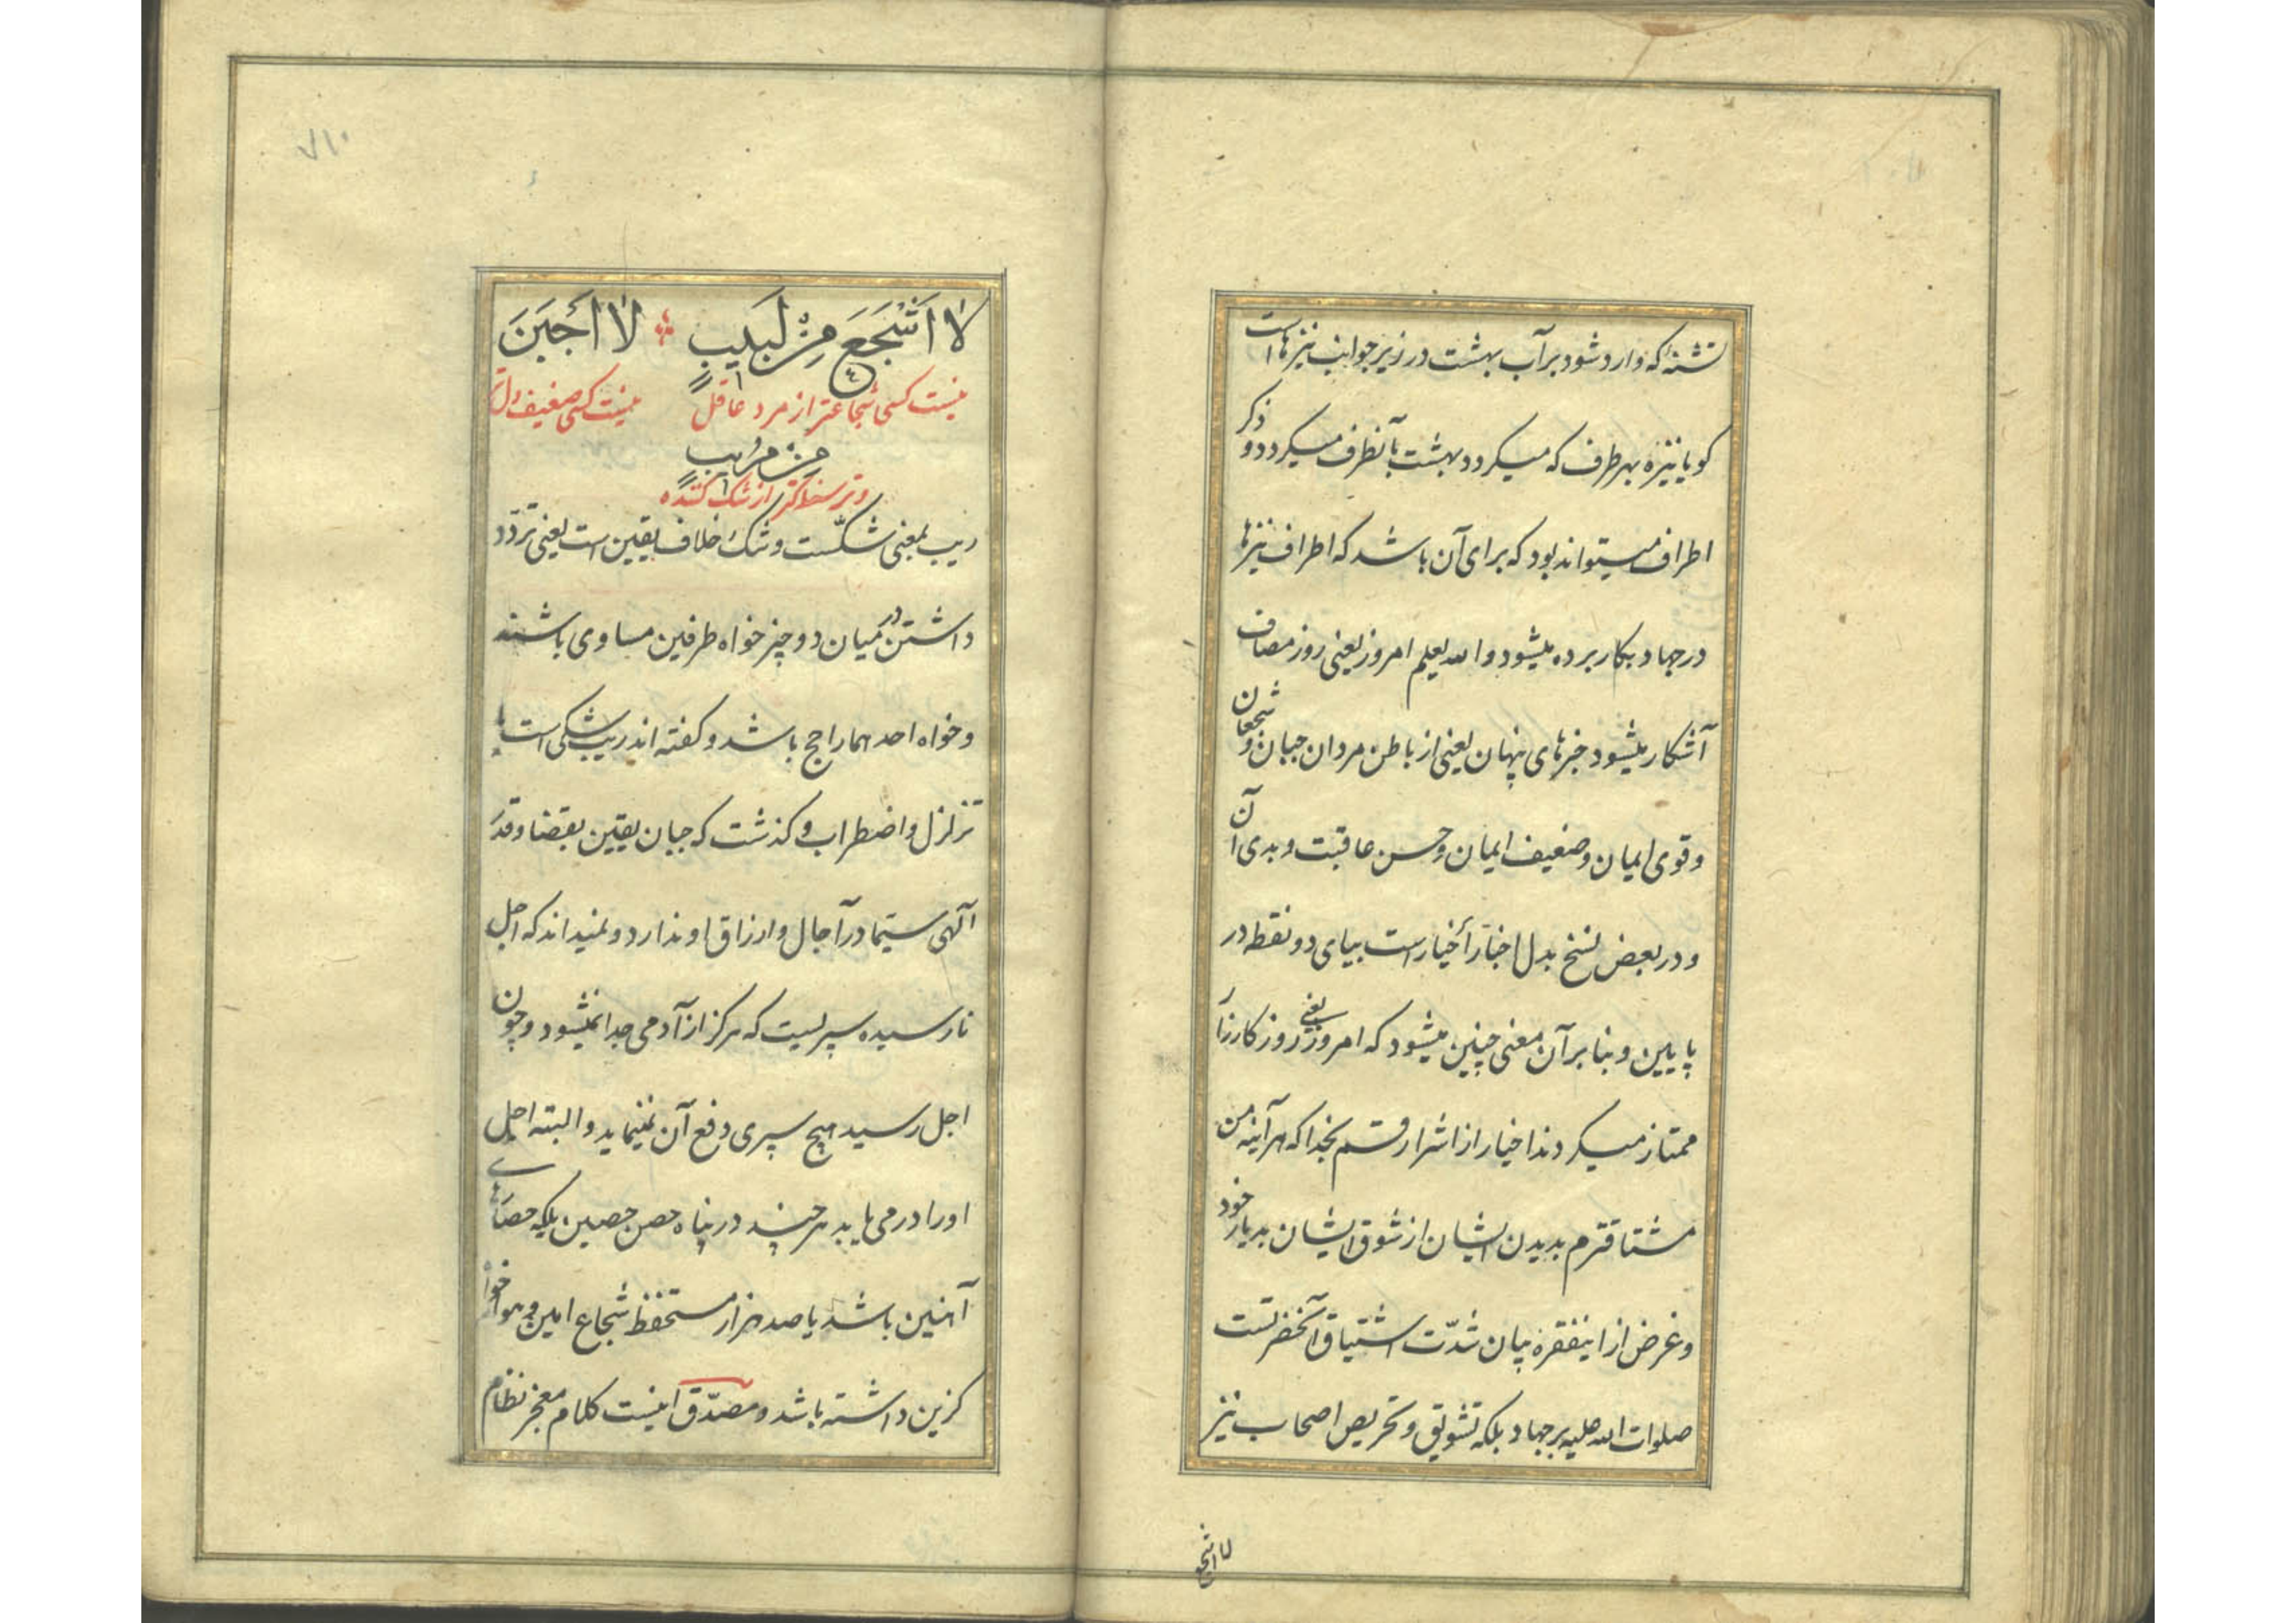 تشنه که وارد شود بر آب بهشت در زیر جوانب نیزهاست
کویا نیزه بهر طرف که میکردد بهشت بآنطرف میکردد و ذکر
اطراف میتواند بود که برای آن باشد که اطراف نیزها
در جهاد بکار برده میشود و الله یعلم امروز یعنی روز مصاف
آشکار میشود خبرهای پنهان یعنی از باطن مردان جبان و شجعان
و قوی ایمان و ضعیف ایمان و حسن عاقبت و بدی آن
و در بعض نسخ بدل اخبار أخیار است بیای دو نقطه در
پایین و بنا بر آن معنی چنین میشود که امروز یعنی روز کارزار
ممتاز میکردند اخیار از اشرار قسم بخدا که هر آینه من
مشتاقترم بدیدن ایشان از شوق ایشان بدیار خود
و غرض از اینفقره بیان شدّت اشتیاق آنحضرتست
صلوات الله علیه بر جهاد بلکه تشویق و تحریص اصحاب نیز
لا اشجع
۷۱۰
لَا اَشْجَعَ مِنْ لَبيبٍ لَا اَجْبَنَ
نیست کسی شجاعتر از مرد عاقل نیست کسی ضعیف دل تر
مِنْ مُريبٍ
و ترسناکتر از شک کننده
ریب بمعنی شکّست و شک خلاف یقین است یعنی تردّد
داشتن در میان دو چیز خواه طرفین مساوی باشند
و خواه احدهما راجح باشد و کفته اند ریب شکی است با
تزلزل و اضطراب و کذشت که جبان یقین بقضا و قدر
آلهی سیّما در آجال و ارزاق او ندارد و نمیداند که اجل
نارسیده سپریست که هرکز از آدمی جدا نمیشود و چون
اجل رسید هیچ سپری دفع آن نمینماید و البته اجل
او را در می یابد هر چند در پناه حصن حصین بلکه حصنهای
آهنین باشد یا صد هزار مستحفظ شجاع امین و هوا خواه
کزین داشته باشد و مصدّق اینست کلام معجز نظام